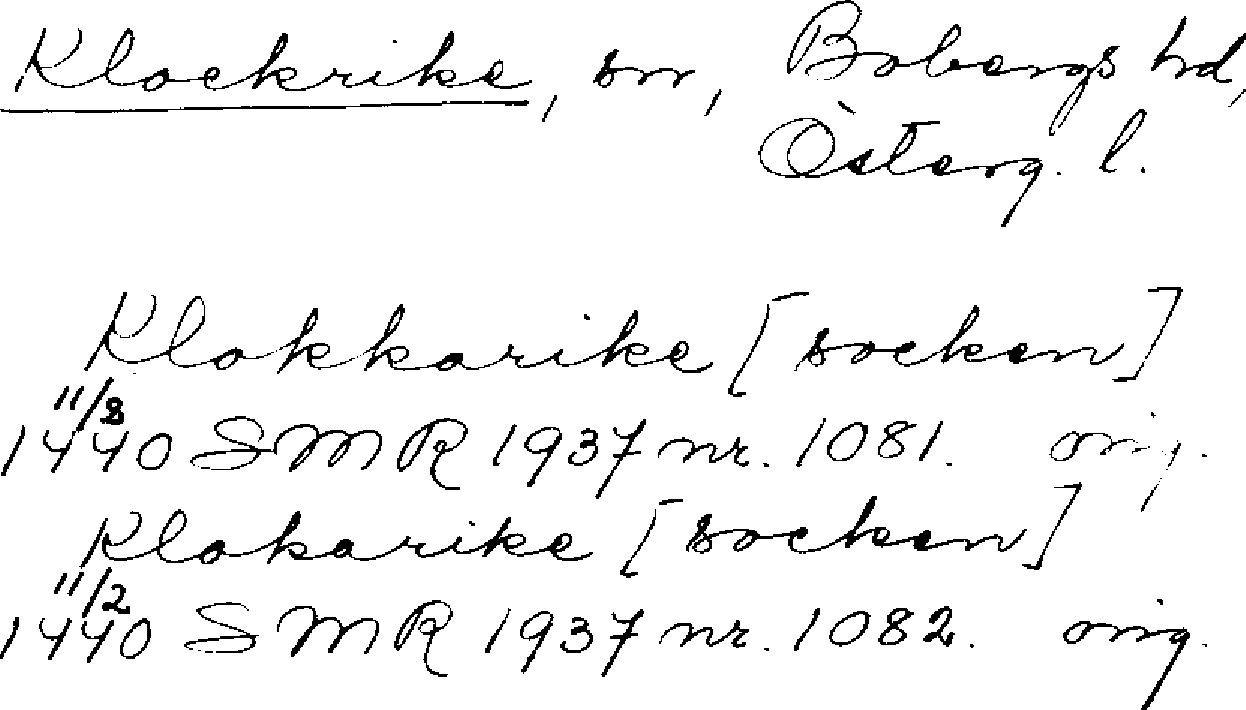 Klockrike, sn, Bobergs hd,
Österg. l.
Klokkarike [socken]
11/8
1440 SMR 1937 nr. 1081. orig.
Klokarike [socken]
11/2
1440 SMR 1937 nr. 1082. orig.